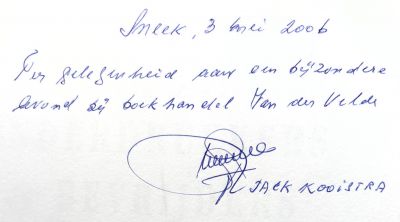 Sneek, 3 mei 2006
Ter gelegenheid aan een bijzondere
avond bij boekhandel Van der Velde
JACK KOOISTRA